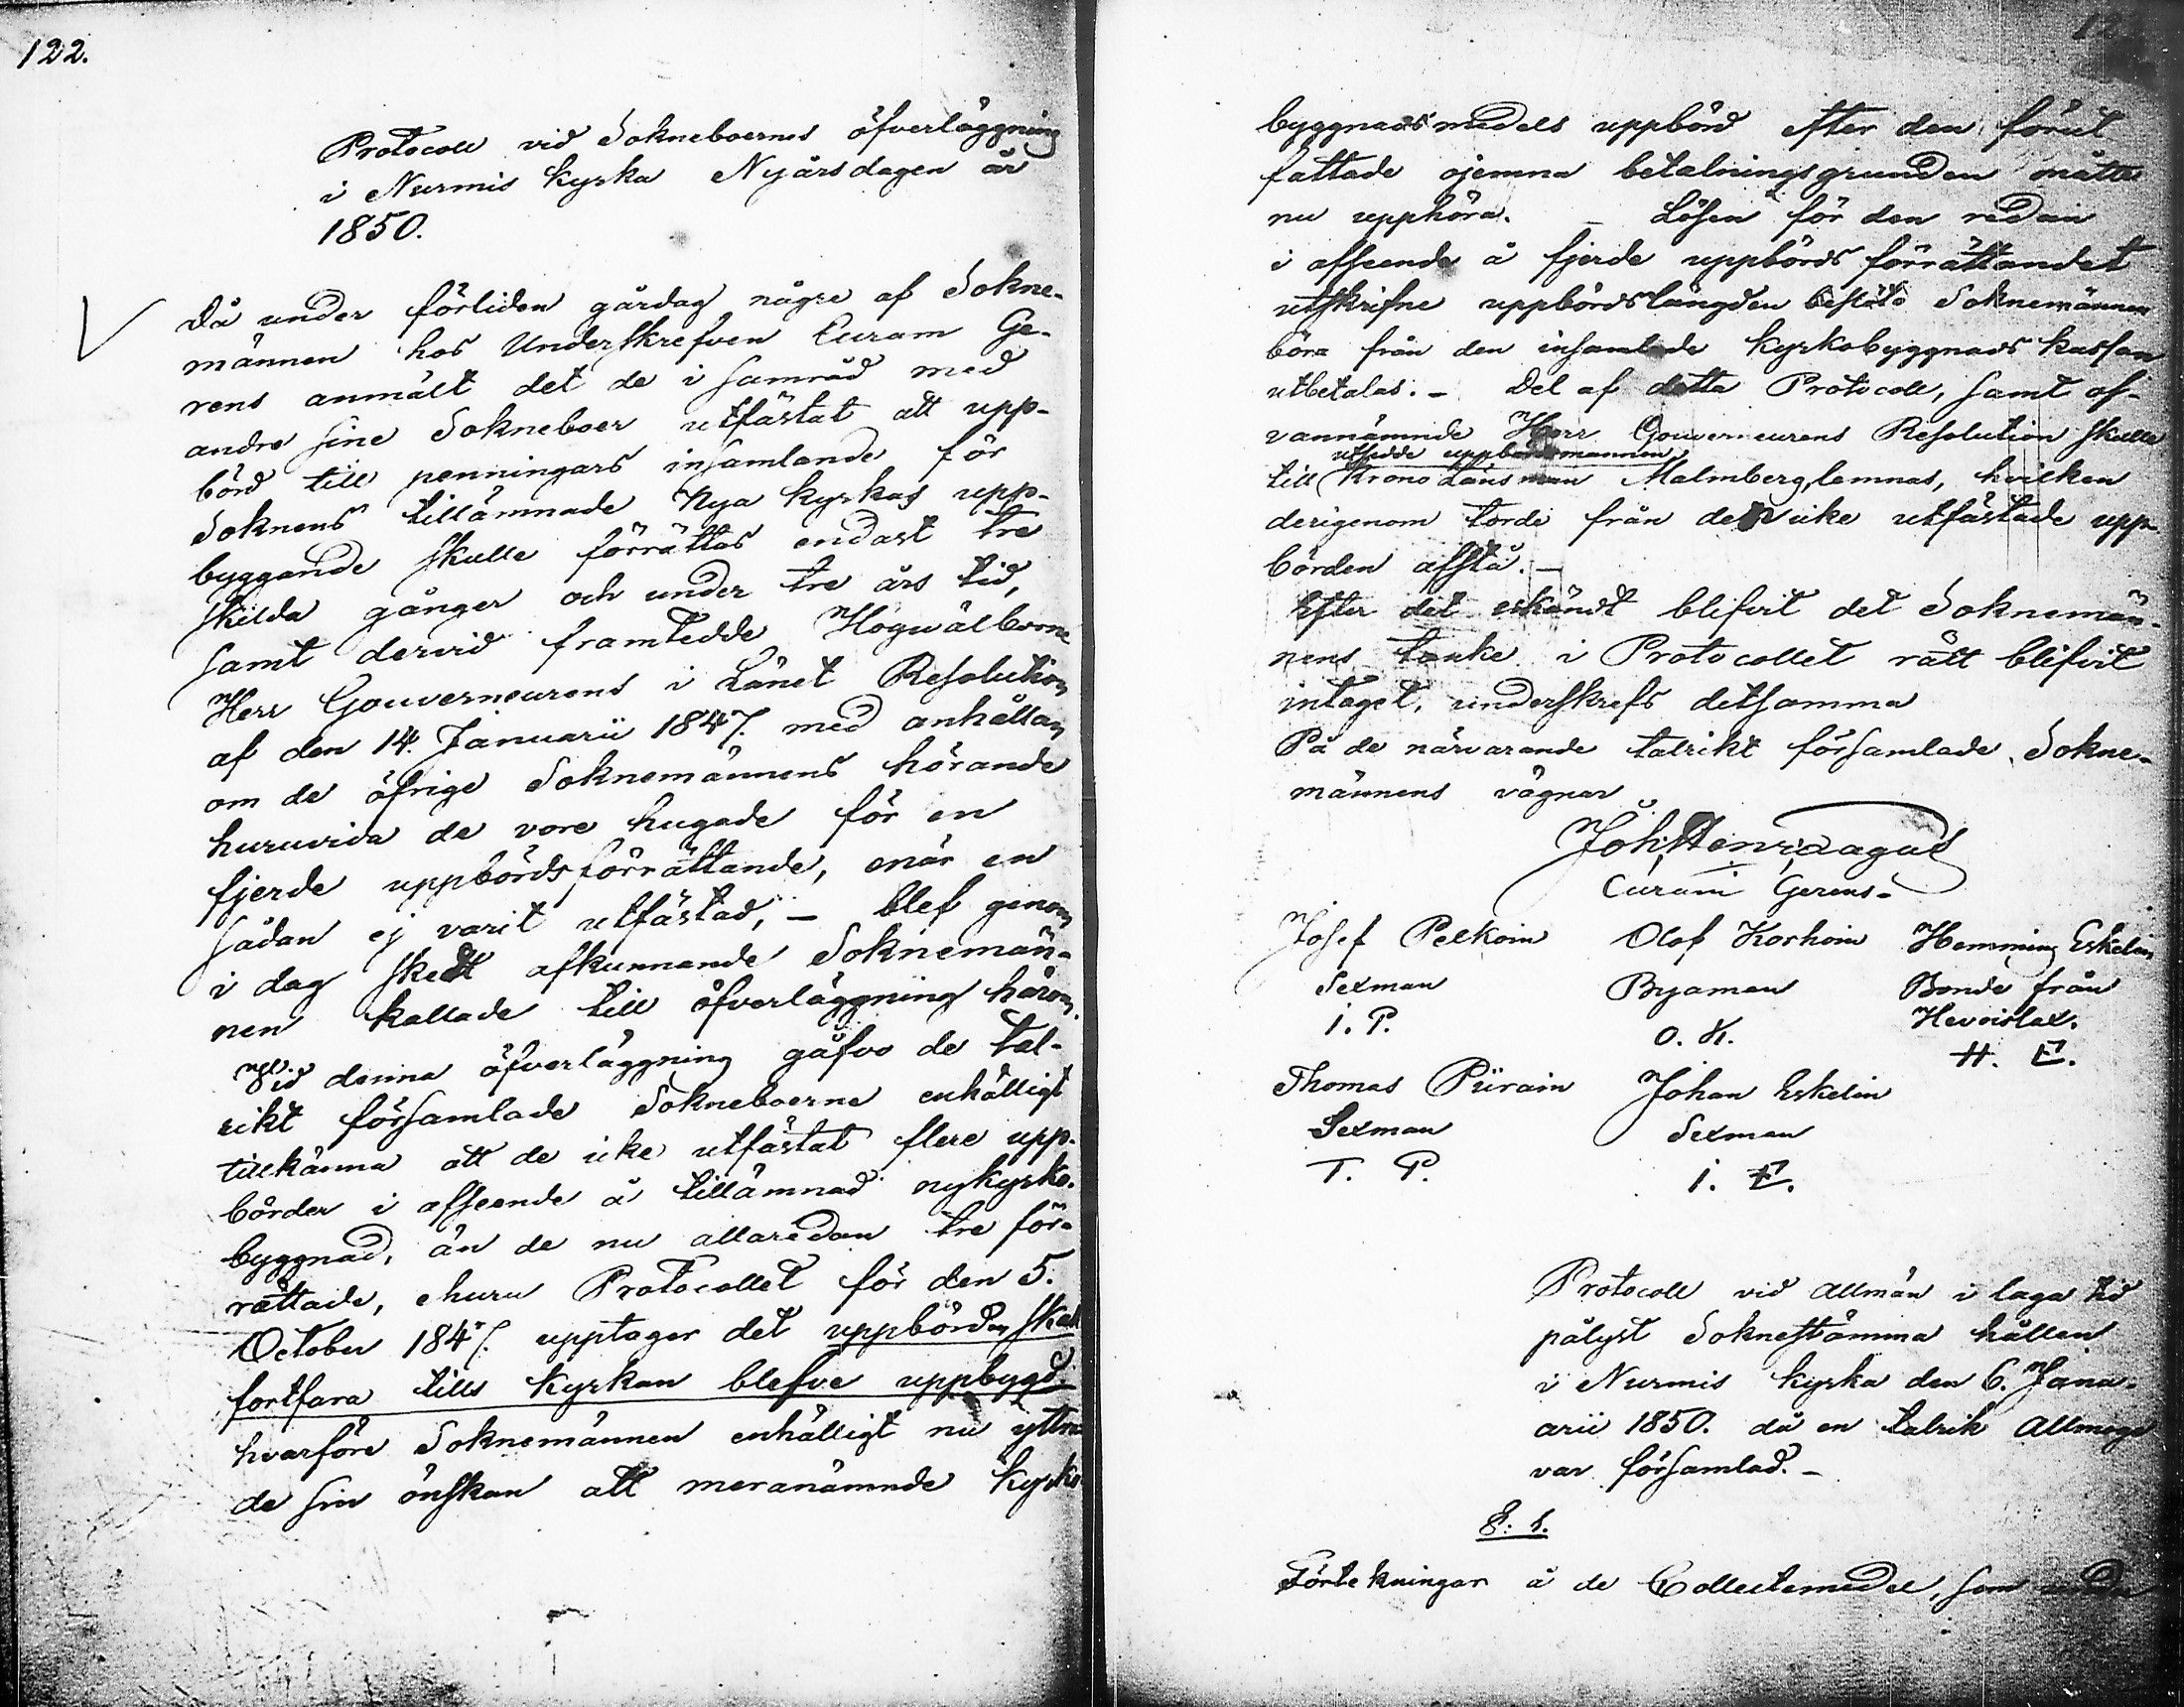 122.
Protocoll vid Sokneboernes öfverläggning
i Nurmis kyrka Nyårsdagen år
1850.
Då under förliden gårdag någre af Sokne-
männen hos Underskrefven Curam Ge-
rens anmält det de i samråd med
andre sine Sokneboer utfästat att upp-
börd till penningars insamlande för
Soknens tillämnade Nya kyrkas upp-
byggande skulle förrättas endast tre
skilda gånger och under tre års tid,
samt dervid framtedde Högwälborne
Herr Gouverneurens i Länet Resolution
af den 14. Januarii 1847. med anhållan
om de öfrige Soknemännens hörande
huruvida de vore hugade för en
fjerde uppbördsförrättande, enär en
sådan ej varit utfästad, – blef genom
i dag skedt afkunnande Soknemän-
nen kallade till öfverläggning härom.
Vid denna öfverläggning gåfvo de tal-
rikt församlade Sokneboerne enhälligt
tillkänna att de icke utfästat flere upp-
börder i afseende å tillämnad nykyrko-
byggnad, än de nu allaredan tre för-
rättade, ehuru Protocollet för den 5.
October 1847. upptager det uppbörden skall
fortfara tills kyrkan blefve uppbygd.
hvarföre Soknemännen enhälligt nu yttra-
de sin önskan att meranämnde kyrko
byggnadsmedels uppbörd efter den förut
fattade ojemna betalningsgrunden måtte
nu upphöra. – Lösen för den redan
i afseende å fjerde uppbörds förrättandet
utskrifne uppbördslängden besluto Soknemännen
böra från den insamlade kyrkobyggnads kassan
utbetalas. – Del af detta Protocoll, samt of-
vannämnde Herr Gouverneurens Resolution skulle
utsedde uppbördsmannen
till Krono Länsman Malmberg, lemnas, hvilken
derigenom torde från den icke utfästade upp-
börden afstå. –
Efter det erkändt blifvit det Soknemän-
nens tanke i Protocollet rätt blifvit
intaget, underskrefs detsamma
På de närvarande talrikt församlade Sokne-
männens vägnar
Joh. Henr.
Curam Gerens.
Josef Pelkoin Olof Korhoin Hemming Eskelin
Sexman Byaman Bonde från
I. P. O. K. Hevoislax.
H. E.
Thomas Piirain Johan Eskelin
Sexman Sexman
T. P. I. E.
Protocoll vid allmän i laga tid
pålyst Soknestämma hållen
i Nurmis kyrka den 6. Janu-
arii 1850. då en talrik Allmoge
var församlad. –
§: 1.
Förtekningar å de Collectemedel, som under